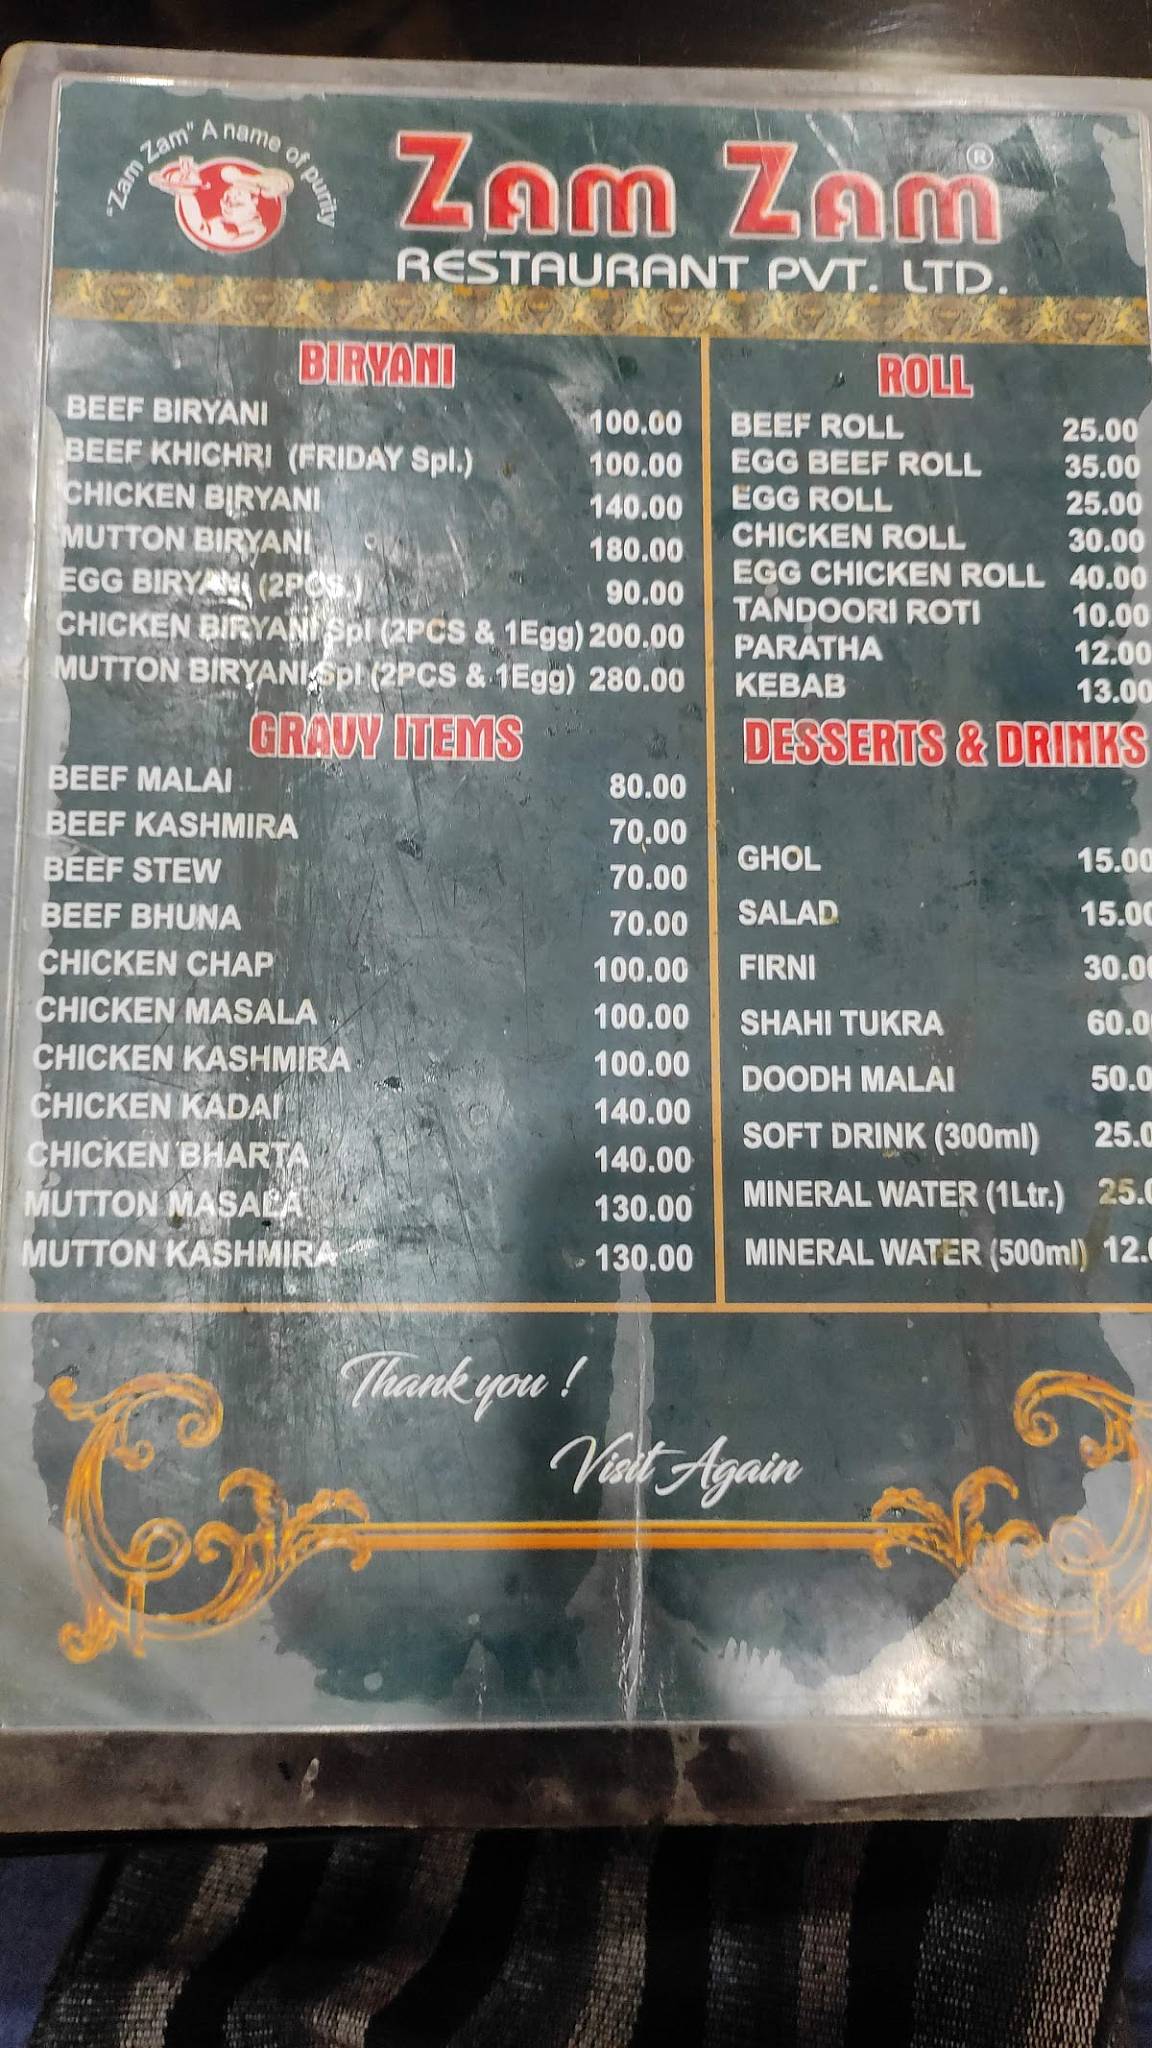 "Zam Zam" A name of purity
Zam Zam ®
RESTAURANT PVT. LTD.
BIRYANI
BEEF BIRYANI 100.00
BEEF KHICHRI (FRIDAY Spl.) 100.00
CHICKEN BIRYANI 140.00
MUTTON BIRYANI 180.00
EGG BIRYANI (2PCS.) 90.00
CHICKEN BIRYANI Spl (2PCS & 1Egg) 200.00
MUTTON BIRYANI Spl (2PCS & 1Egg) 280.00
GRAVY ITEMS
BEEF MALAI 80.00
BEEF KASHMIRA 70.00
BEEF STEW 70.00
BEEF BHUNA 70.00
CHICKEN CHAP 100.00
CHICKEN MASALA 100.00
CHICKEN KASHMIRA 100.00
CHICKEN KADAI 140.00
CHICKEN BHARTA 140.00
MUTTON MASALA 130.00
MUTTON KASHMIRA 130.00
ROLL
BEEF ROLL 25.00
EGG BEEF ROLL 35.00
EGG ROLL 25.00
CHICKEN ROLL 30.00
EGG CHICKEN ROLL 40.00
TANDOORI ROTI 10.00
PARATHA 12.00
KEBAB 13.00
DESSERTS & DRINKS
GHOL 15.00
SALAD 15.00
FIRNI 30.00
SHAHI TUKRA 60.0
DOODH MALAI 50.0
SOFT DRINK (300ml) 25.0
MINERAL WATER (1Ltr.) 25.0
MINERAL WATER (500ml) 12.0
Thank you !
Visit Again